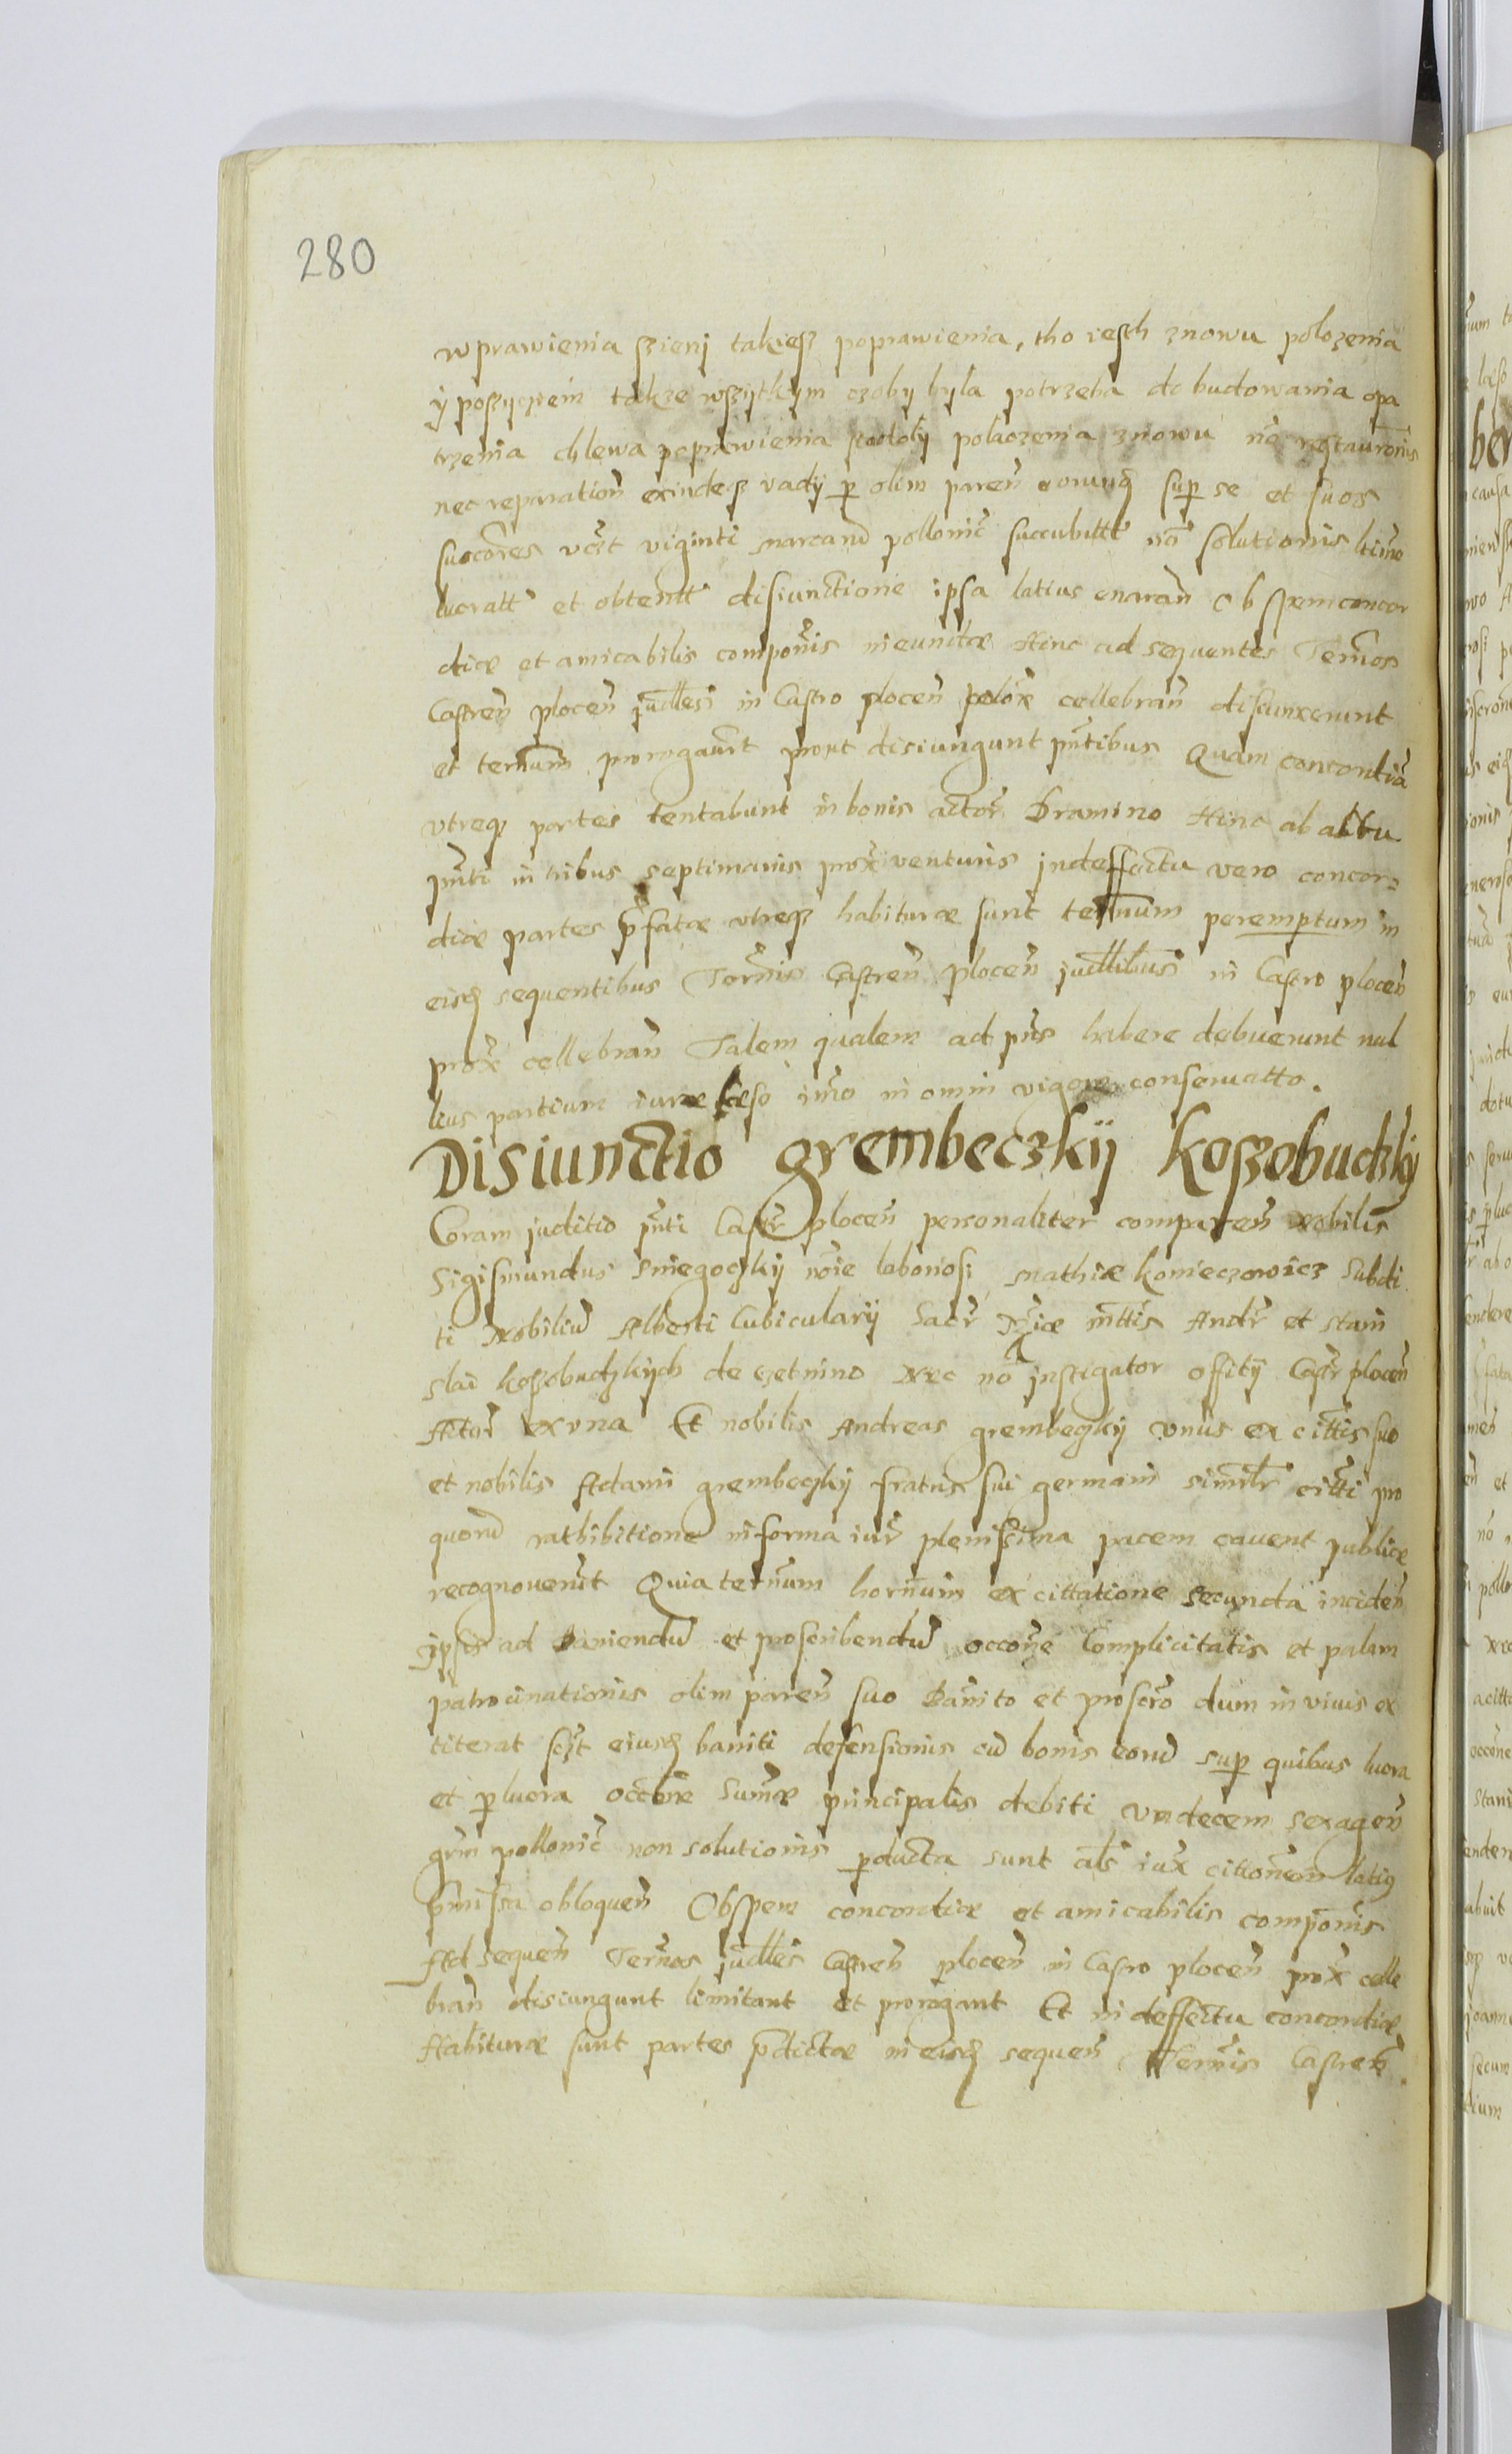 280
wprawienia szienj takiesz poprawienia, tho iesth znowu polozenia
ÿ poszyczeim takze wszÿtkym czoby byla potrzeba do budowania opa
trzenia chlewa poprawienia podolÿ polaozenia znowu nō restaurōnis
nec reparation̄ exindeqȝ vadÿ p̱ olim paren̄ sup̱ se et suos
succōres vcȝt viginti marcarū pollonic̄ succubitt nō solutionis
lucratt et obtentt disiunctione ipsa latius enarān Ob spem concor
diæ et amicabilis compōnis ineundæ Hinc ad sequentes Term̄os
Castren̄ plocen̄ judlles in Castro plocen̄ cellebrān disiunxerunt
et term̄um prorogaurt prout disiungunt pn̄tibus Quam concordiā
vtreqȝ partes tentabunt in bonis actor̄ Dramino Hinc ab actu
pn̄ti in tribus septimanis prox̄ venturis jndeffectu vero concor⸗
diæ partes p̄fatæ vtreqȝ habituræ sunt term̄num peremptum in
eisd̄ sequentibus Term̄is Castren̄ plocen̄ judllibus in Castro plocen̄
prox̄ cellebrān Talem qualem ad pn̄s habere debuerunt nul
lius partium iure leso im̄o in omni vigore conseruatto.
Disiunctio grembeczkÿ koszobudzkÿ
Coram juditio pn̄ti Castr̄ plocen̄ personaliter comparen̄ Nobilis
Sigismundus Sniegoczkÿ noīe laboriosi Mathiæ konieczowicz Subdi
ti Nobiliū Alberti Cubicularÿ Sacr̄ Rg̱iæ mttis Andr̄ et stani
slai koszobudzkÿch de czetnino Nec nō jnstigator offitÿ Castr̄ plocen̄
Actor̄ ex vna Et nobilis Andreas grembeczkÿ vnus ex cittis suo
et nobilis Adami grembeczkÿ fratris sui germani simil̄r citti pro
quorū rathibitione in forma iur̄ plenissima pacem cauent publice
recognouerūt Quia term̄num hornum̄ ex cittatione secunda inciden̄
ipsis ad Baniendū et proscribendū occōne Complicitatis et palam
patrocinationis olim paren̄ suo Banito et proscr̄o dum in viuis ex
titerat scȝt eiusd̄ baniti defensionis cū bonis eorū sup̱ quibus lucra
et p̱lucra occōne Sum̄æ principalis debiti vndecem sexagen̄
grm̄ pollonic̄ non solutionis p̱ducta sunt als̄ iux̄ cittōnem latius
pm̄issa obloquen̄ Obspem concordiæ et amicabilis compōnis
Ad sequen̄ Term̄os judlles Castren̄ plocen̄ in Castro plocen̄ prox̄ celle
brān disiungunt limitant et prorogant Et in deffectu concordiæ
Habituræ sunt partes p̄dictæ in eisd̄ sequen̄ Term̄is Castren̄